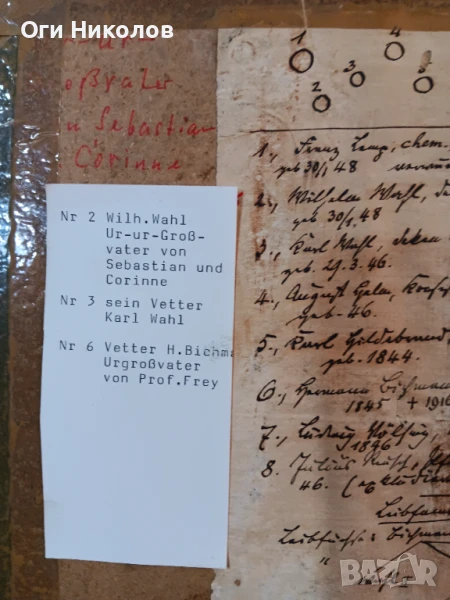 Оги Николов
oßvater
n Sebastian
Corinne
Nr 2 Wilh.Wahl
Ur-ur-Groß-
vater von
Sebastian und
Corinne
Nr 3 sein Vetter
Karl Wahl
Nr 6 Vetter H.Bichm
Urgroßvater
von Prof.Frey
1
2
3
4
5
1., Franz Lamp, chem.
geb 30/1 48
2., Wilhelm Wahl, de
geb 30/1.48
3., Karl Wahl, dekan
geb. 29.3.46.
4., August Helm,
geb. 46.
5., Karl Hildebrand,
geb. 1844.
6., Hermann Bichman
1845 + 1916
7., Ludwig
1846
8. Julius
46.
Leibfüchse: Bichman
"
bazar